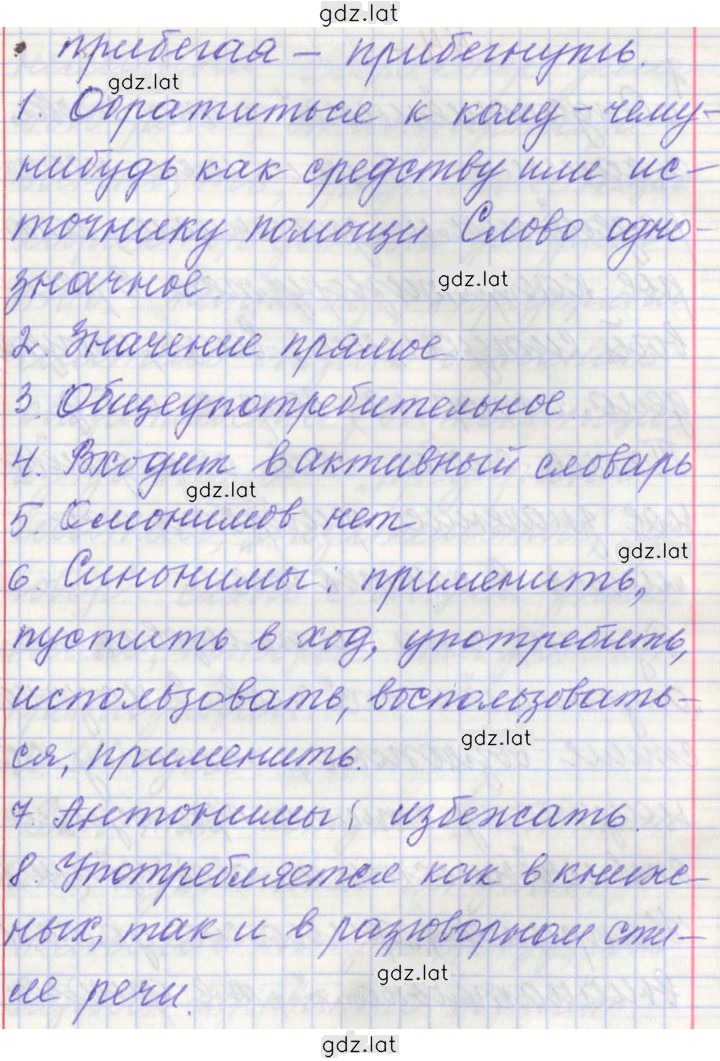 gdz.lat
• прибегая – прибегнуть.
gdz.lat
1. Обратиться к кому-чему-
нибудь как средству или ис-
точнику помощи Слово одно-
значное
gdz.lat
2. Значение прямое.
3. Общеупотребительное
4. Входит в активный словарь
gdz.lat
5. Омонимов нет
gdz.lat
6. Синонимы: применить,
пустить в ход, употребить,
использовать, воспользовать-
ся, применить.
gdz.lat
7. Антонимы: избежать.
8. Употребляется как в книж-
ных, так и в разговорном сти-
ле речи.
gdz.lat
gdz.lat